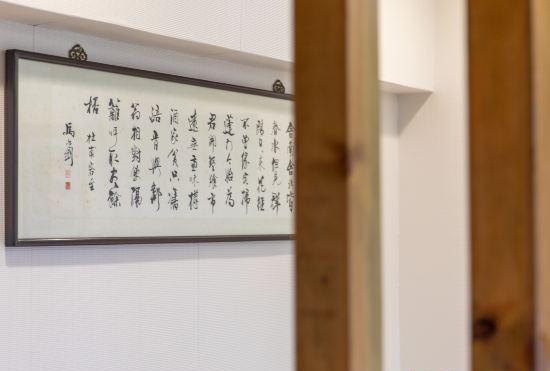 舍南舍北皆
春水但見群
鷗日日来花徑
不曾緣客掃
蓬門今始為
君開盤飧市
遠無兼味樽
酒家貧只舊
醅肯與鄰
翁相對飲隔
籬呼取盡餘
杯
杜甫客至